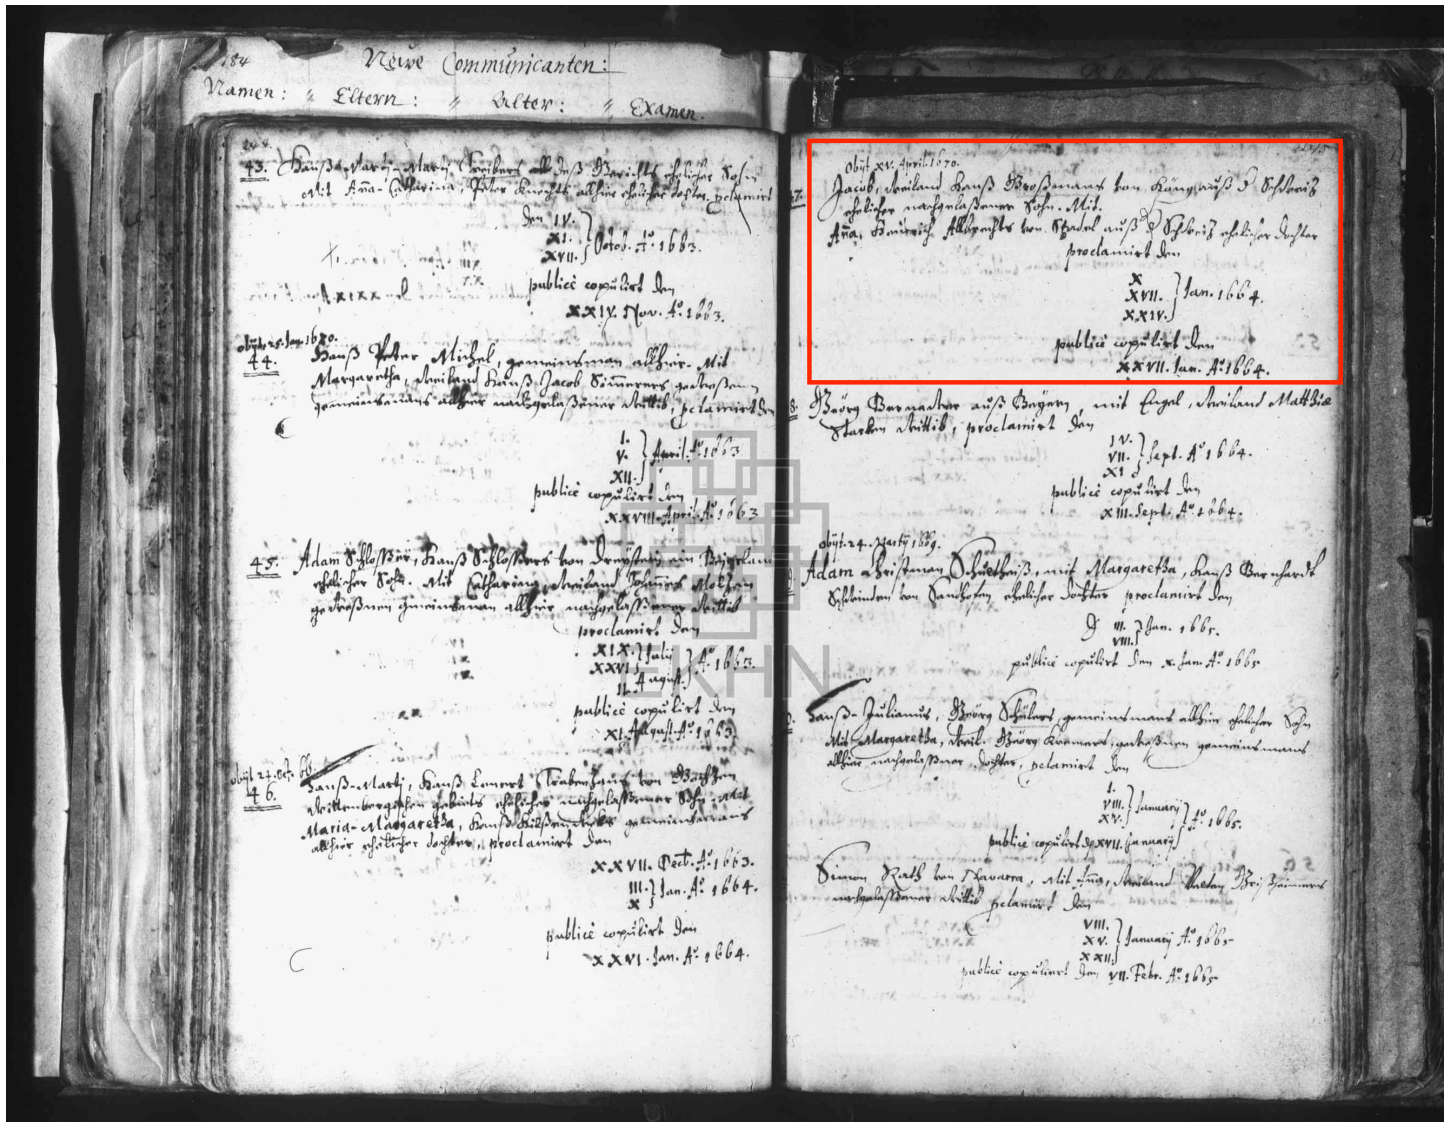 184
Newe Communicanten:
Namen: " Eltern: " Alter: " Examen.
43. Hanß Marx, Marx Treibers deß Gerichts ehelicher Sohn
Mit Anna-Catharina, Peter Knechts allhier ehelicher dochter, pclamirt
den IV.
XI.
XVII. Octob. Aº. 1663.
publicè copulirt den
XXIV. Nov. Aº. 1663.
obijt. 25. Jan. 1670.
44. Hanß Peter Michel, gemeinsman allhier. Mit
Margaretha, weiland Hanß Jacob gewesenen
gemeinsmans allhier nachgelaßener Wittib, pclamirt den
I.
V. April. Aº. 1663
XII.
publicè copulirt den
XXVIII. April. Aº. 1663
45. Adam Schlosser, Hanß Schlossers von
ehelicher Sohn. Mit Catharina, weiland Johannes
geweßnen gmeinsman allhier nachgelassener Wittib
proclamirt den
XIX. July
XXVI. Aº. 1663.
II. August.
publicè copulirt den
XI. August. Aº. 1663.
obijt 24. oct. 66.
46. Hanß-Martj, Hanß Lenert von
Wittenbergischen gebiets ehelicher nachgelaßener Sohn. Mit
Maria-Margaretha, Hanß gemeinsmans
allhier ehelicher dochter, proclamirt den
XXVII. Decb. Aº. 1663.
III. Jan. Aº. 1664.
X
publicè copulirt den
XXVI. Jan. Aº. 1664.
Obijt. XV. April. 1670.
47. Jacob, weiland Hanß Großmans von Höng auß d Schweitz
ehelicher nachgelaßener Sohn. Mit.
Anna, Heinrich Albrechts von Stadel auß d Schweitz ehelicher dochter
proclamirt den
X
XVII. Jan. 1664.
XXIV.
publicè copulirt den
XXVII. Jan. Aº. 1664.
8: Geörg auß Beyern, mit Engel, weiland Matthiæ
Starken Wittib, proclamirt den
IV.
VII. Sept. Aº 1664.
XI
publicè copulirt den
XIII. Sept. Aº. 1664.
obijt. 24. Martij 1669.
Adam Christman Schultheiß, mit Margaretha, Hanß Bernhardt
von Sandhofen ehelicher dochter proclamirt den
III. Jan. 1665.
VIII.
publicè copulirt den X. Jan. Aº. 1665
Hanß-Julianus, Geörg Schülers gemeinsmans allhier ehelicher Sohn
Mit Margaretha, weil. Geörg Kremers, geweßnen gemeinsmans
allhier nachgelaßner dochter, pclamirt den
I.
VIII. January
XV. Aº. 1665.
publicè copulirt d XVII. January
Simon Rath von Navarra, Mit Anna, weiland Velten
nachgelaßener Wittib pclamirt den
VIII.
XV. January Aº. 1665
XXII.
publicè copuliert den VII. Febr. Aº. 1665
EKHN